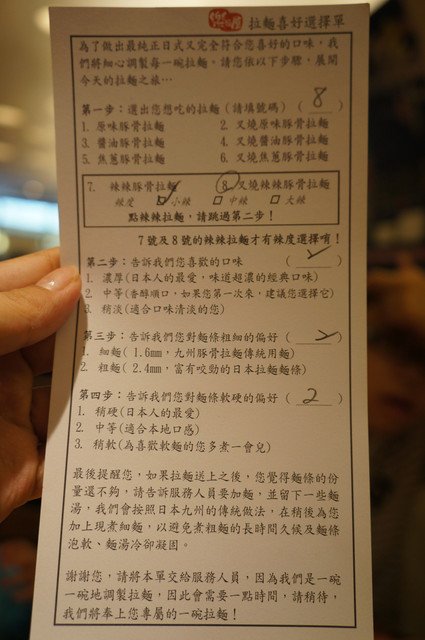 拉麵喜好選擇單
為了做出最純正日式又完全符合您喜好的口味，我
們將細心調製每一碗拉麵，請您依以下步驟，展開
今天的拉麵之旅…
第一步：選出您想吃的拉麵（請填號碼）（ 8 ）
1. 原味豚骨拉麵 2. 叉燒原味豚骨拉麵
3. 醬油豚骨拉麵 4. 叉燒醬油豚骨拉麵
5. 焦蔥豚骨拉麵 6. 叉燒焦蔥豚骨拉麵
7. 辣辣豚骨拉麵 8. 叉燒辣辣豚骨拉麵
辣度 ☑小辣 □中辣 □大辣
點辣辣拉麵，請跳過第二步！
7號及8號的辣辣拉麵才有辣度選擇唷！
第二步：告訴我們您喜歡的口味（ ）
1. 濃厚(日本人的最愛，味道超濃的經典口味)
2. 中等(香醇順口，如果您第一次來，建議您選擇它)
3. 稍淡(適合口味清淡的您)
第三步：告訴我們您對麵條粗細的偏好（ ）
1. 細麵(1.6mm，九州豚骨拉麵傳統用麵)
2. 粗麵(2.4mm，富有咬勁的日本拉麵麵條)
第四步：告訴我們您對麵條軟硬的偏好（ 2 ）
1. 稍硬(日本人的最愛)
2. 中等(適合本地口感)
3. 稍軟(為喜歡軟麵的您多煮一會兒)
最後提醒您，如果拉麵送上之後，您覺得麵條的份
量還不夠，請告訴服務人員要加麵，並留下一些麵
湯，我們會按照日本九州的傳統做法，在稍後為您
加上現煮細麵，以避免煮粗麵的長時間久候及麵條
泡軟、麵湯冷卻凝固。
謝謝您，請將本單交給服務人員，因為我們是一碗
一碗地調製拉麵，因此會需要一點時間，請稍待，
我們將奉上您專屬的一碗拉麵！